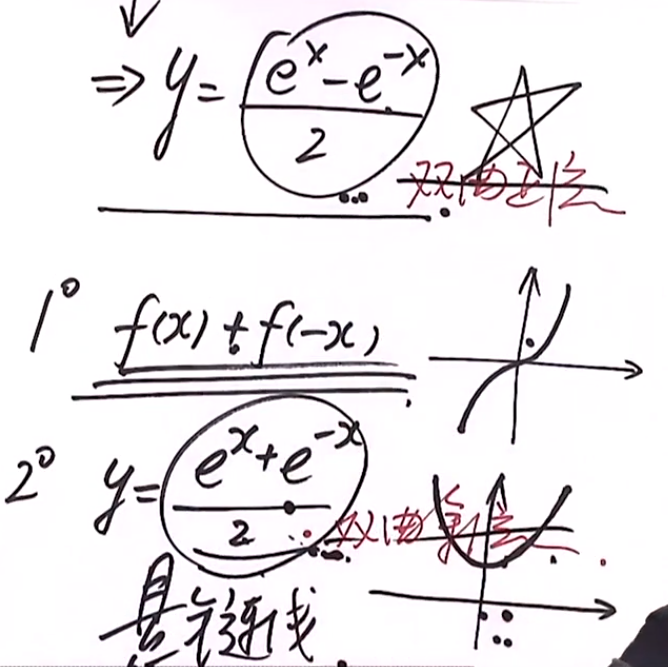 ⇒ y = (e^x - e^{-x})/2
双曲正弦
1° f(x) + f(-x)
2° y = (e^x + e^{-x})/2
双曲余弦
悬链线